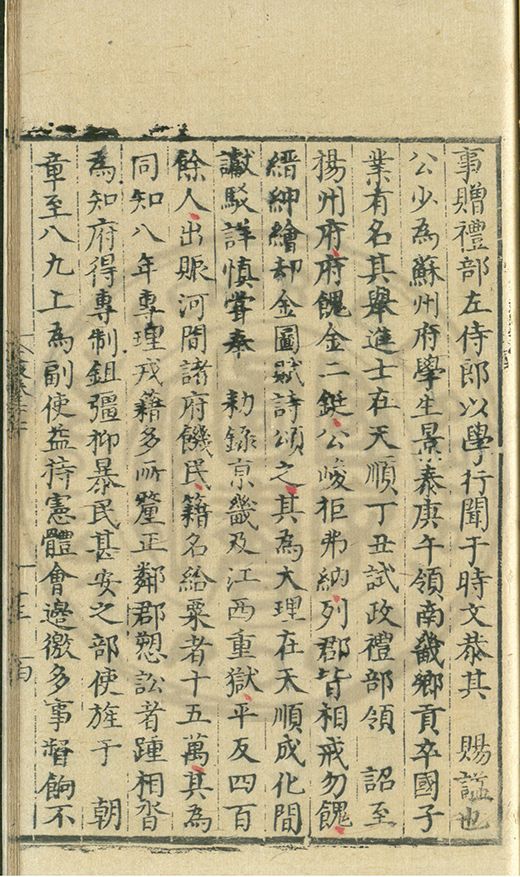 事贈禮部左侍郎以學行聞于時文恭其　賜謚也
公少為蘇州府學生景泰庚午領南畿鄉貢卒國子
業有名其舉進士在天順丁丑試政禮部領　詔至
揚州府府餽金二鋌公峻拒弗納列郡皆相戒勿餽
縉紳繪却金圖賦詩頌之其為大理在天順成化間
讞駁詳慎嘗奉　勑錄京畿及江西重獄平反四百
餘人出賑河間諸府饑民籍名給粟者十五萬其為
同知八年專理戎籍多所釐正鄰郡愬訟者踵相沓
為知府得專制鉏彊抑暴民甚安之部使旌于　朝
章至八九上為副使益持憲體會邊徼多事督餉不